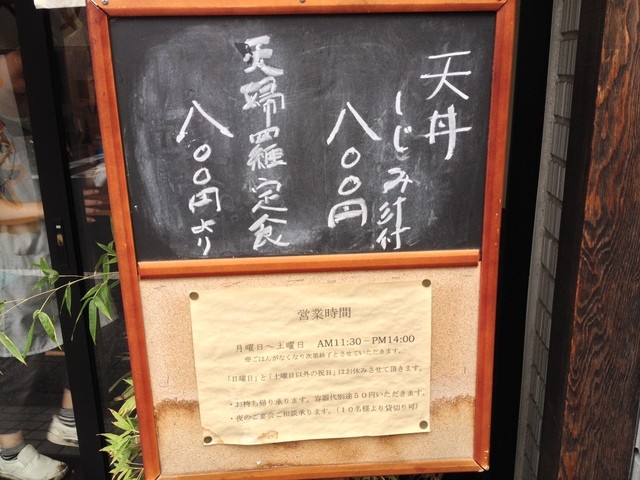 天丼
しじみ汁付
八〇〇円
天婦羅定食
八〇〇円より
営業時間
月曜日～土曜日 AM11:30－PM14:00
※ごはんがなくなり次第終了とさせていただきます。
「日曜日」と「土曜日以外の祝日」はお休みさせて頂きます。
・お持ち帰り承ります。容器代別途50円いただきます。
・夜のご宴会ご相談承ります。(10名様より貸切り可)